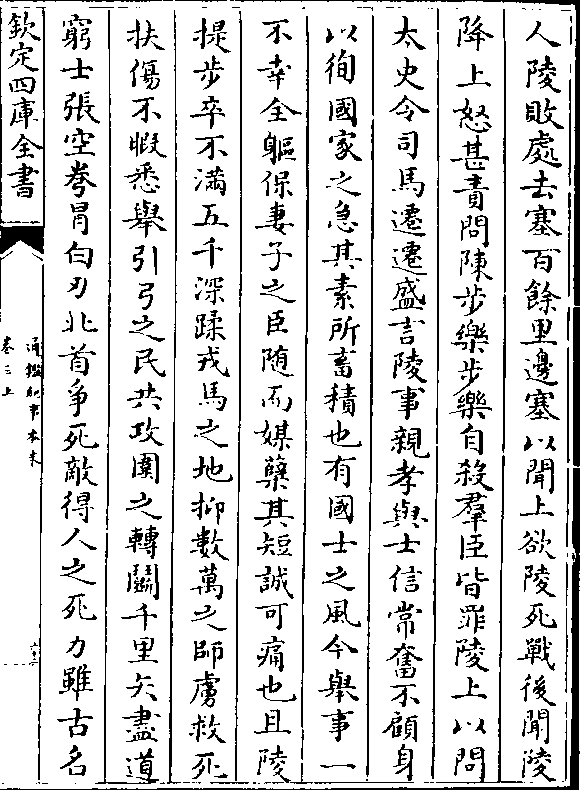 人陵敗處去塞百餘里邊塞以聞上欲陵死戰後聞陵
降上怒甚責問陳步樂步樂自殺羣臣皆罪陵上以問
太史令司馬遷遷盛言陵事親孝與士信常奮不顧身
以徇國家之急其素所畜積也有國士之風今舉事一
不幸全軀保妻子之臣随而媒糵其短誠可痛也且陵
提步卒不滿五千深蹂戎馬之地抑數萬之師虜救死
扶傷不暇悉舉引弓之民共攻圍之轉鬭千里矢盡道
窮士張空弮冒白刃北首争死敵得人之死力雖古名
欽定四庫全書
通鑑紀事本末
卷三上
六十二